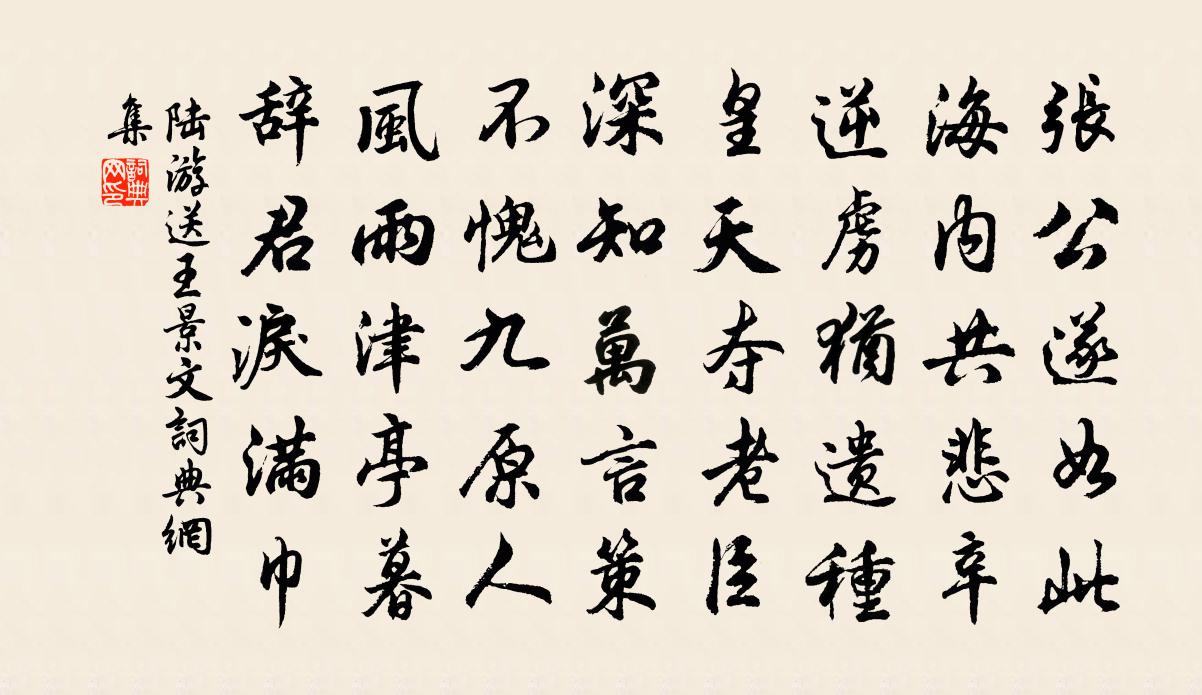 張公遂如此
海内共悲辛
逆虜猶遺種
皇天夺老臣
深知萬言策
不愧九原人
風雨津亭暮
辞君淚滿巾
陆游送王景文詞典網
集
詞典網印